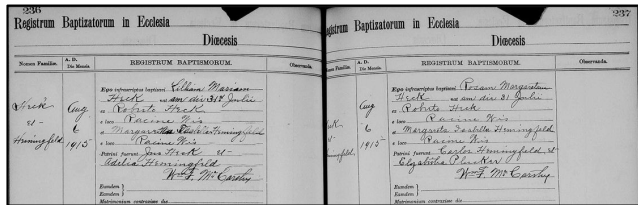 236
Registrum Baptizatorum in Ecclesia
Diœcesis
Nomen Familiæ.
A. D.
Die Mensis
REGISTRUM BAPTISMORUM.
Observanda.
Heck
et
Hemingfeld
Aug
6
1915
Ego infrascriptus baptizavi Lilliam Mariam
Heck nat am die 31st Julii
ex Roberto Heck
e loco Racine Wis
et Margaretha Hemingfeld
e loco Racine Wis
Patrini fuerunt Jos Heck et
Adelia Hemingfeld
Wm F. McCarthy
Eumdem
Eamdem
Matrimonium contraxisse die
237
Registrum Baptizatorum in Ecclesia
Diœcesis
Familiæ.
A. D.
Die Mensis
REGISTRUM BAPTISMORUM.
Observanda.
Aug
6
1915
Ego infrascriptus baptizavi Rosam Margaretam
Heck nat am die 31 Julii
ex Roberto Heck
e loco Racine Wis
et Margareta Isabella Hemingfeld
e loco Racine Wis
Patrini fuerunt Carlos Hemingfeld et
Elizabetha
Wm F. McCarthy
Eumdem
Eamdem
Matrimonium contraxisse die